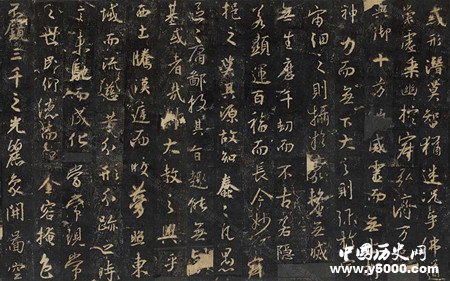 形潛莫智猶迷況乎佛
崇虛乘幽控寂弘濟万
典御十方威靈而無
神力而無下大之則弥於
宙細之則攝於毫釐無滅
無生歷千劫而不古若隱
若顯運百福而長今妙
挹之莫其源故知蠢蠢凡愚
區區庸鄙投其旨趣能無
惑者哉大教之興乎
西土騰漢庭而皎夢照東
域而流慈昔分形分跡之時
言未馳而成化當常現常
之世民仰德而金容掩色
鏡三千之光麗象開圖空
中国历史网
www.y5000.com